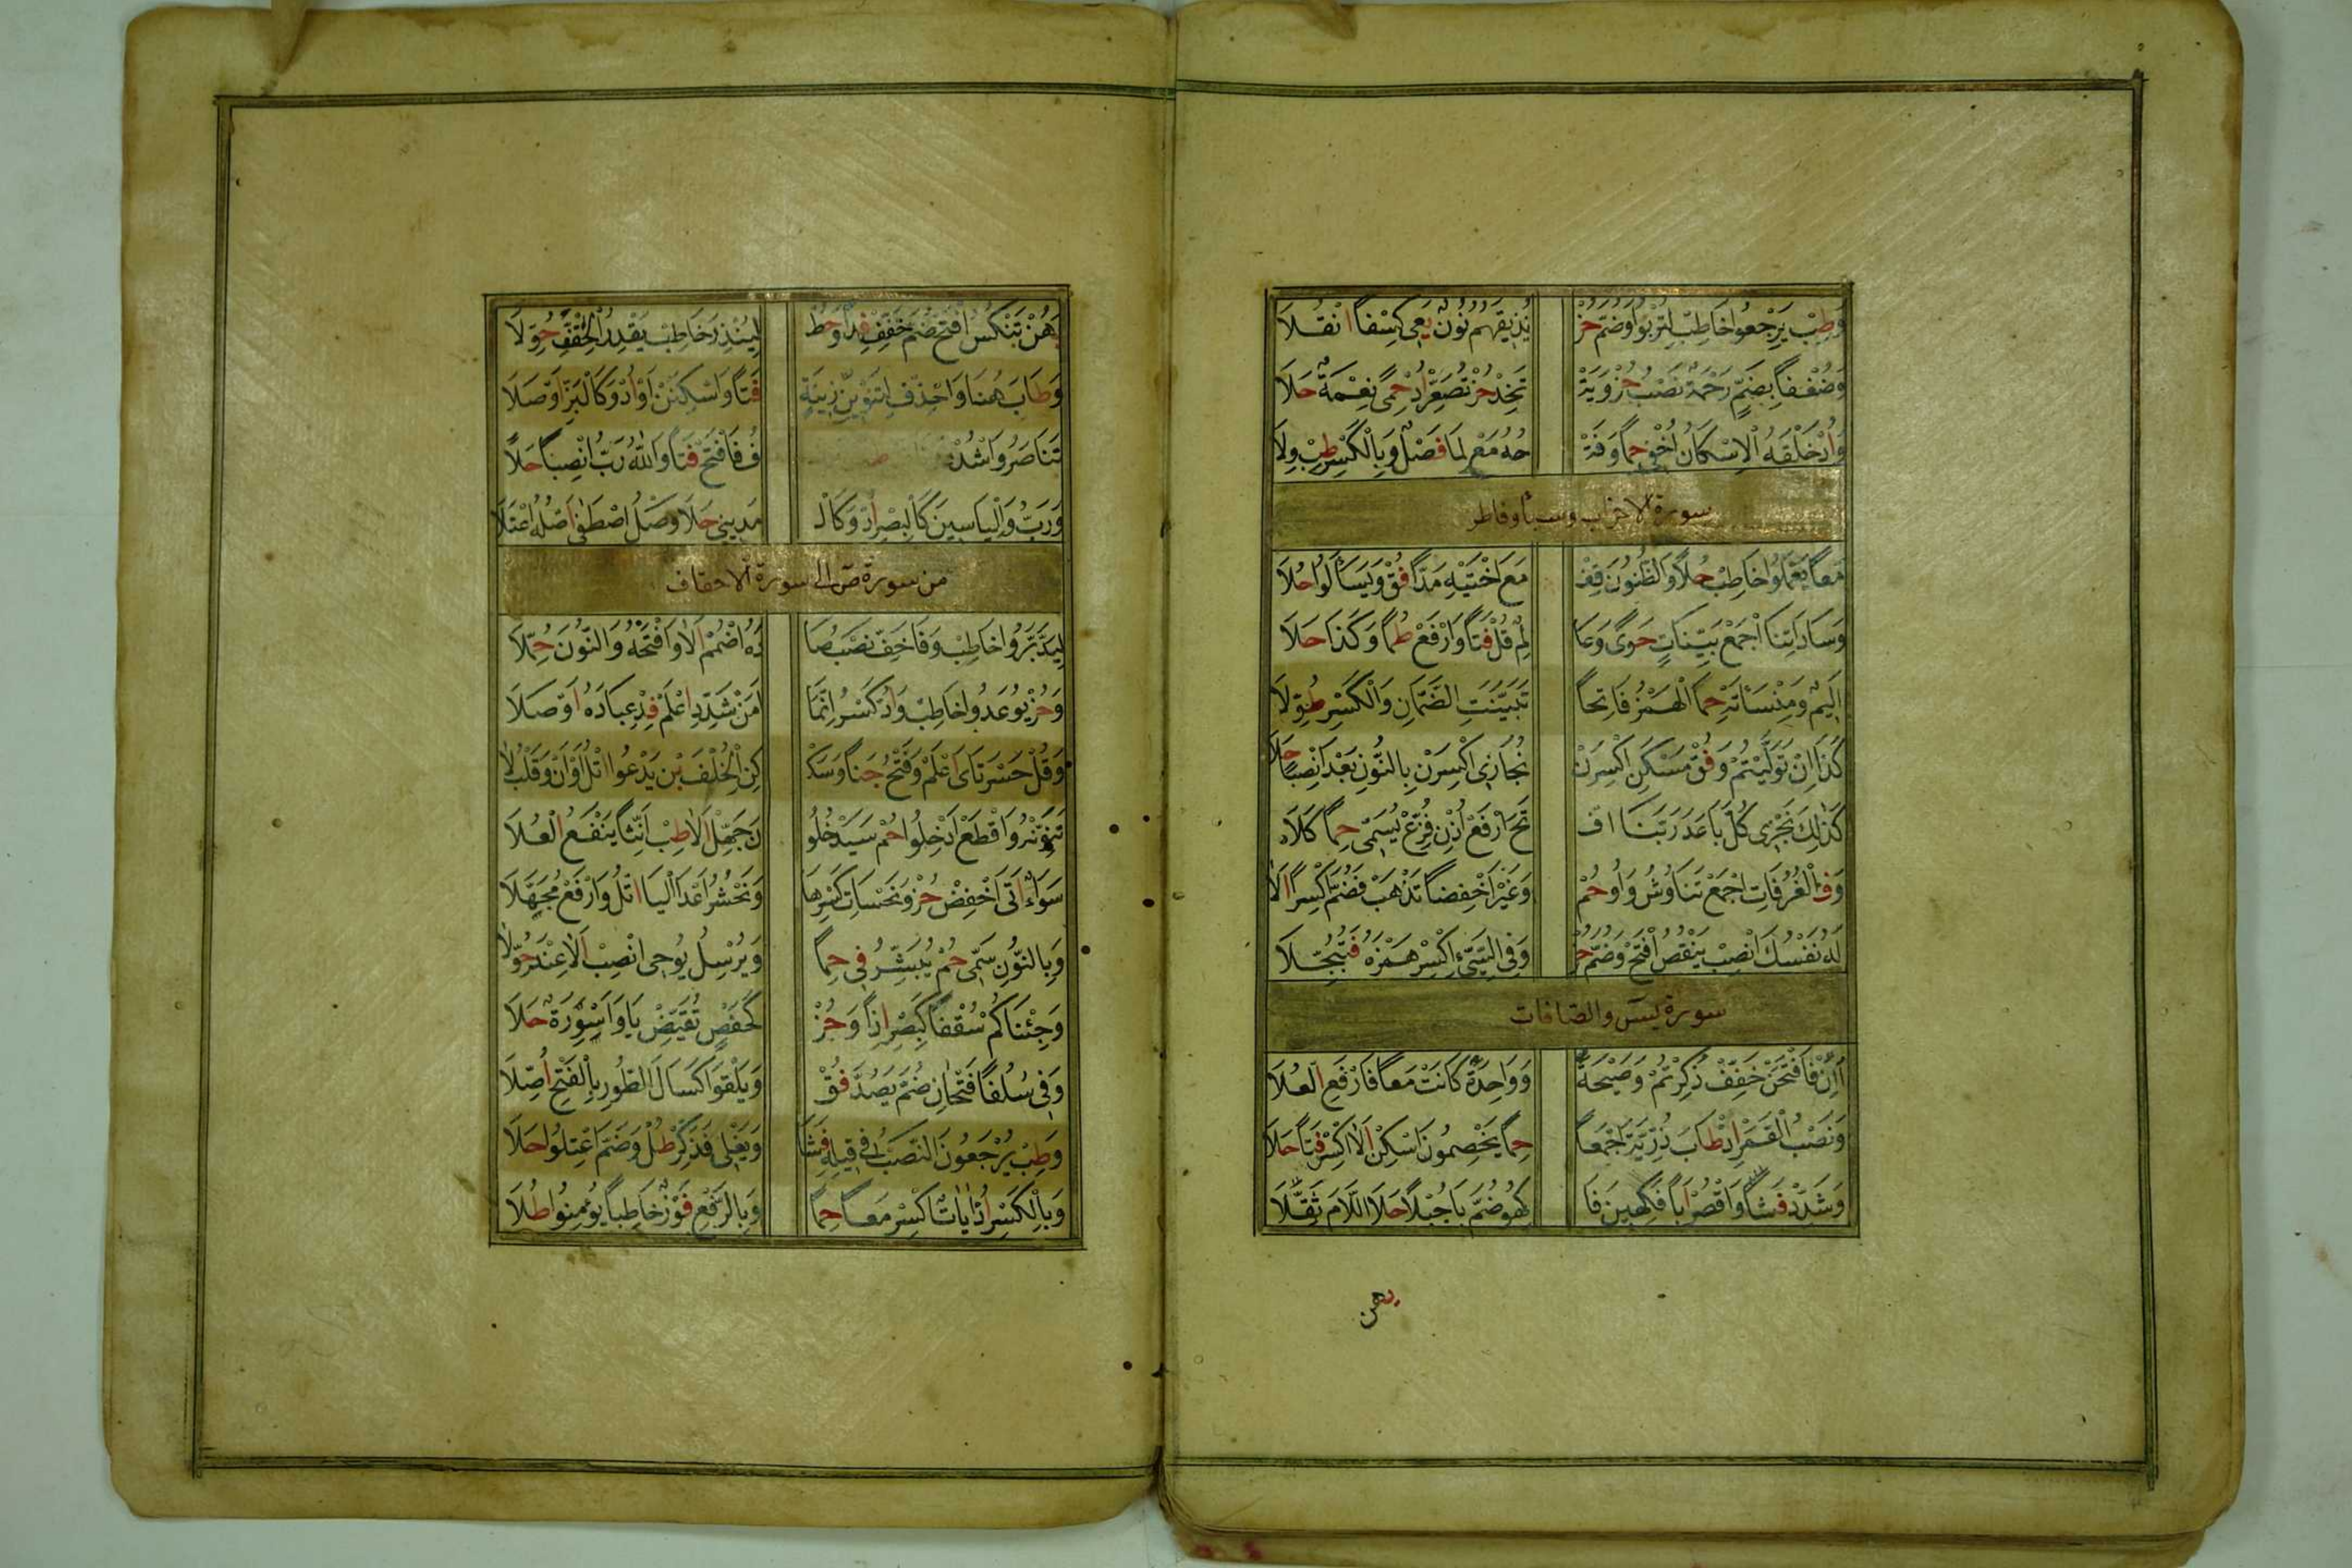 وَطِبْ يَرْجِعُوا خَاطِبْ لِتُرْبُوا وَضُمَّ حُزْ نُذِيقَهُمُ نُونٌ يَعِي كِسْفًا انْقُلَا
وَضُعْفًا بِضَمٍّ رَحْمَةً نَصْبُ حُزْ وَيَتْ تَخِذْ حُزْ تُصَعِّرْ اُدْ حِمًى نِعْمَةً حَلَا
وَاُدْ خَلْقَهُ الْاِسْكَانُ اُخْفِيْ حِمًا وَفَتْ حُهُ مَعْ لِمَا فَصْلٌ وَبِالْكَسْرِ طِبْ وِلَا
سورة الاحزاب وسبأ وفاطر
مَعًا يَعْمَلُوا خَاطِبْ حُلًا وَالظُّنُونَ قِفْ مَعَ اخْتَيْهِ مَدًّا فُقْ وَيَسَّاَلُوا حُلَا
وَسَادَاتِنَا اجْمَعْ بَيِّنَاتٍ حَوَى وَعَا لِمٌ قُلْ فَتًا وَارْفَعْ طُمًا وَكَذَا حَلَا
اَلِيمٌ وَمِنْسَاَتَهْ حِمَا الْهَمْزُ فَاتِحًا تُبُيِّنَتِ الضَّمَّانِ وَالْكَسْرِ طُوِّلَا
كَذَا اِنْ تُوُلِّيتُمْ وَفُقْ مَسْكَنِ اكْسِرَنْ نُجَازِي اكْسِرَنْ بِالنُّونِ بَعْدُ انْصِبًا حَلَا
كَذٰلِكَ نَجْزِي كُلَّ بَاعَدَ رَبُّنَا افْ تَحَ ارْفَعْ اُذْنْ فُزِّعْ يُسَمِّي حِمًا كِلَا
وَفي الْغُرُفَاتِ اجْمَعْ تَنَاوُشُ وَاوُ حُمْ وَغَيْرُ اخْفِضًا تَذْهَبْ فَضُمَّ اكْسِرًا اَلَا
لَهُ نَفْسُكَ انْصِبْ يَنْقُصُ افْتَحْ وَضُمَّ حُزْ وَفِي السَّيِّئِ اكْسِرْ هَمْزَهُ فَتُبَجَّلَا
سورة يس والصافات
اَاِنْ فَافْتَحَنْ خَفِّفْ ذُكِرْتُمْ وَصَيْحَةً وَوَاحِدَةً كَانَتْ مَعًا فَارْفَعِ الْعُلَا
وَنَصْبُ الْقَمَرْ اِذْ طَابَ ذُرِّيَّةَ اجْمَعًا حِمًا يَخْصِمُونَ اسْكِنْ اَلَا اكْسِرْ فَتًا حَلَا
وَشَدِّدْ فَشَا وَاقْصُرْ اَبًا فَكِهِينَ فَا كِهُو ضُمَّ بَا جُبْلًا حَلَا اللَّامَ ثَقِّلَا
يهن
يَهُنْ تَنْكُسُ افْتَحْ ضُمَّ خَفِّفْ فِدًا وَحُطْ لِيُنْذِرَ خَاطِبْ يَقْدِرُ الْحِقْفِ حُوِّلَا
وَطَابَ هُنَا وَاحْذِفْ لِتَنْوِينِ زِينَةٍ فَتًا وَاسْكِنَنْ اَوْ اُدْ وَكَالْبَزِّ اَوْصَلَا
تَنَاصَرُوا اشْدُدْ فُ فَافْتَحْ فَتًا وَاللهُ رَبُّ انْصِبًا حَلَا
وَرَبُّ وَاِلْيَاسِينَ كَالْبَصْرِ اُدْ وَكَالْ مَدِينِيْ حَلَا وَصْلُ اصْطَفٰى اَصْلُهُ اعْتَلَا
من سورة ص الى سورة الاحقاف
لِيَدَّبَّرُوا خَاطِبْ وَفَا خَفَّ نَصْبُ صَا دَهُ اضْمُمْ اَلَا وَافْتَحْهُ وَالنُّونَ حُمِّلَا
وَحُزْ يُوعَدُوا خَاطِبْ وَاُدْ كَسْرَ اِنَّمَا اَمَنْ شَدِّدِ اعْلَمْ فِدْ عِبَادَهُ اَوْصَلَا
وَقُلْ حَسْرَتَايَ اعْلَمْ وَفَتْحٌ جَنَا وَسَكْ كِنِ الْخُلْفَ بِنْ يَدْعُوا اتْلُ اَوْ اَنْ وَقَلْبِ لَا
تُنَوِّنْهُ وَاقْطَعْ اَدْخِلُوا حُمْ سَيَدْخُلُو نَ جَهِّلْ اَلَا طِبْ اَنِّثًا يَنْفَعُ الْعُلَا
سَوَاءٌ اَتَى اخْفِضْ حُزْ وَنَحْسَاتِ كَسْرُهَا وَنَحْشُرُ اَعْدَا الْيَا اتْلُ وَارْفَعْ مُجَهِّلَا
وَبِالنُّونِ سَمَّى حُمْ يُبَشِّرُ فِي حِمًا وَيُرْسِلُ يُوحِي انْصِبْ اَلَا عِنْدَ حُوِّلَا
وَجِئْنَاكُمْ سُقْفًا كَبَصْرٍ اِذًا وَحُزْ كَحَفْصٍ نُقَيِّضْ يَا وَاَسْوِرَةٌ حَلَا
وَفِي سُلُفًا فَتْحَانِ ضُمَّ يَصُدُّ فُقْ وَيَلْقَوْا كَسَالَ الطُّورِ بِالْفَتْحِ اُصِّلَا
وَطِبْ يُرْجَعُونَ النَّصْبُ فِي قِيلِهِ فَشَا وَيَغْلِي فَذَكِّرْ طُلْ وَضُمَّ اعْتِلُوا حَلَا
وَبِالْكَسْرِ اِذْ اٰيَاتٌ اكْسِرْ مَعًا حِمًا وَبِالرَّفْعِ فَوْزٌ خَاطِبًا يُؤْمِنُوا طُلَا